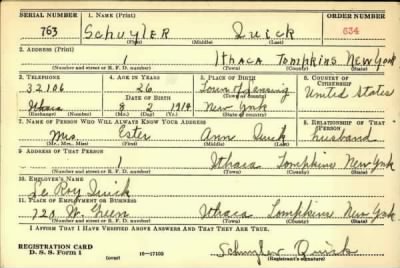 SERIAL NUMBER 1. Name (Print) ORDER NUMBER
763 SCHUYLER QUICK 634
(First) (Middle) (Last)
2. Address (Print)
Ithaca Tompkins New York
(Number and street or R. F. D. number) (Town) (County) (State)
3. Telephone 4. Age in Years 5. Place of Birth 6. Country of Citizenship
32106 26 Town of Lansing United States
Date of Birth
Ithaca 8 2 1914 New York
(Exchange) (Number) (Mo.) (Day) (Yr.) (State or country)
7. Name of Person Who Will Always Know Your Address 8. Relationship of That Person
Mrs. Ester Ann Quick husband
(Mr., Mrs., Miss) (First) (Middle) (Last)
9. Address of That Person
1 Ithaca Tompkins New York
(Number and street or R. F. D. number) (Town) (County) (State)
10. Employer's Name
Le Roy Quick
11. Place of Employment or Business
720 W. Green Ithaca Tompkins New York
(Number and street or R. F. D. number) (Town) (County) (State)
I Affirm That I Have Verified Above Answers and That They Are True.
REGISTRATION CARD
D. S. S. Form 1 (over) 16—17105 Schuyler Quick
(Registrant's signature)